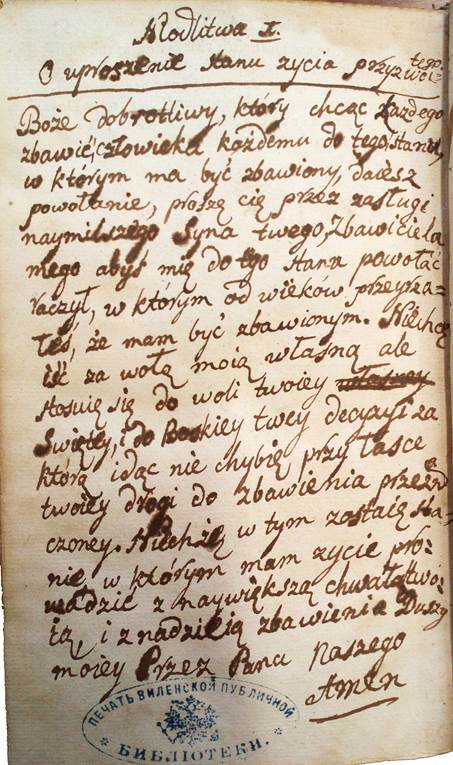 Modlitwa I.
O uproszenie stanu zycia przyzwoi=
tego.
Boże dobrotliwy, który chcąc każdego
zbawić człowieka każdemu do tego stanu,
w którym ma być zbawiony, daiesz
powołanie, proszę cię przez zasługi
naymilszego Syna twego, Zbawiciela
mego abyś mię do tego stanu powołać
raczył, w którym od wieków przeyrza=
łeś, że mam być zbawionym. Niechcę
iść za wolą moią własną ale
stosuię się do woli twoiey własney
Swiętey, i do Boskiey twey decyzyi za
którą idąc nie chybię przy łasce
twoiey drogi do zbawienia przezna
czoney. Niech żę w tym zostaię sta=
nie, w którym mam zycie pro=
wadzić z naywiększą chwałą two=
ią, i z nadzieią zbawienia Duszy
moiey Przez Pana Naszego
Amen
ПЕЧАТЬ ВИЛЕНСКОЙ ПУБЛИЧНОЙ
БИБЛІОТЕКИ.